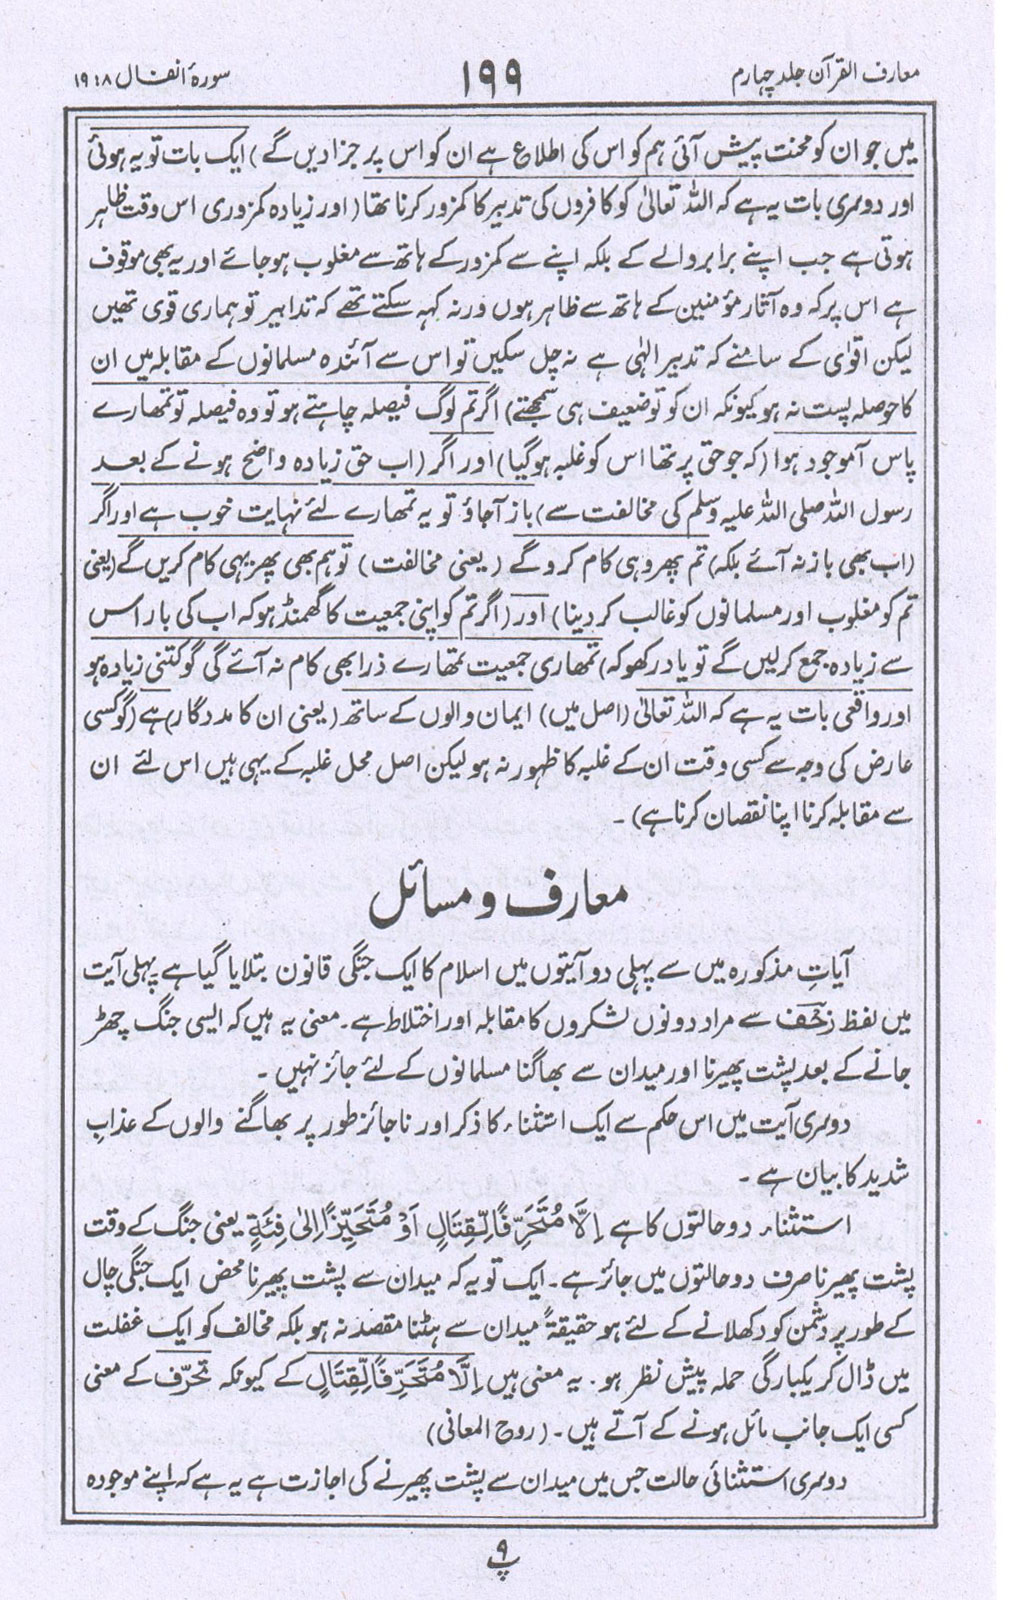 معارف القرآن جلد چہارم
۱۹۹
سورۂ انفال ۸ : ۱۹
میں جو ان کو محنت پیش آئی ہم کو اس کی اطلاع ہے ان کو اس پر جزا دیں گے) ایک بات تو یہ ہوئی
اور دوسری بات یہ ہے کہ اللہ تعالیٰ کو کافروں کی تدبیر کا کمزور کرنا تھا (اور زیادہ کمزوری اس وقت ظاہر
ہوتی ہے جب اپنے برابر والے کے بلکہ اپنے سے کمزور کے ہاتھ سے مغلوب ہو جائے اور یہ بھی موقوف
ہے اس پر کہ وہ آثار مؤمنین کے ہاتھ سے ظاہر ہوں ورنہ کہہ سکتے تھے کہ تدابیر تو ہماری قوی تھیں
لیکن اقوٰی کے سامنے کہ تدبیر الٰہی ہے نہ چل سکیں تو اس سے آئندہ مسلمانوں کے مقابلہ میں ان
کا حوصلہ پست نہ ہو کیونکہ ان کو تو ضعیف ہی سمجھتے) اگر تم لوگ فیصلہ چاہتے ہو تو وہ فیصلہ تو تمھارے
پاس آموجود ہوا (کہ جو حق پر تھا اس کو غلبہ ہو گیا) اور اگر (اب حق زیادہ واضح ہونے کے بعد
رسول اللہ صلی اللہ علیہ وسلم کی مخالفت سے) باز آجاؤ تو یہ تمھارے لئے نہایت خوب ہے اور اگر
(اب بھی باز نہ آئے بلکہ) تم پھر وہی کام کرو گے (یعنی مخالفت) تو ہم بھی پھر یہی کام کریں گے (یعنی
تم کو مغلوب اور مسلمانوں کو غالب کر دینا) اور (اگر تم کو اپنی جمعیت کا گھمنڈ ہو کہ اب کی بار اس
سے زیادہ جمع کر لیں گے تو یاد رکھو کہ) تمھاری جمعیت تمھارے ذرا بھی کام نہ آئے گی گو کتنی زیادہ ہو
اور واقعی بات یہ ہے کہ اللہ تعالیٰ (اصل میں) ایمان والوں کے ساتھ (یعنی ان کا مددگار) ہے (گو کسی
عارض کی وجہ سے کسی وقت ان کے غلبہ کا ظہور نہ ہو لیکن اصل محل غلبہ کے یہی ہیں اس لئے ان
سے مقابلہ کرنا اپنا نقصان کرنا ہے)۔
معارف و مسائل
آیاتِ مذکورہ میں سے پہلی دو آیتوں میں اسلام کا ایک جنگی قانون بتلایا گیا ہے پہلی آیت
میں لفظ زَحْف سے مراد دونوں لشکروں کا مقابلہ اور اختلاط ہے۔ معنی یہ ہیں کہ ایسی جنگ چھڑ
جانے کے بعد پشت پھیرنا اور میدان سے بھاگنا مسلمانوں کے لئے جائز نہیں۔
دوسری آیت میں اس حکم سے ایک استثناء کا ذکر اور ناجائز طور پر بھاگنے والوں کے عذابِ
شدید کا بیان ہے۔
استثناء دو حالتوں کا ہے اِلَّا مُتَحَرِّفًا لِّقِتَالٍ اَوْ مُتَحَيِّزًا اِلٰى فِئَةٍ یعنی جنگ کے وقت
پشت پھیرنا صرف دو حالتوں میں جائز ہے۔ ایک تو یہ کہ میدان سے پشت پھیرنا محض ایک جنگی چال
کے طور پر دشمن کو دکھلانے کے لئے ہو حقیقۃً میدان سے ہٹنا مقصد نہ ہو بلکہ مخالف کو ایک غفلت
میں ڈال کر یکبارگی حملہ پیش نظر ہو۔ یہ معنی ہیں اِلَّا مُتَحَرِّفًا لِّقِتَالٍ کے کیونکہ تحرّف کے معنی
کسی ایک جانب مائل ہونے کے آتے ہیں۔ (روح المعانی)
دوسری استثنائی حالت جس میں میدان سے پشت پھیرنے کی اجازت ہے یہ ہے کہ اپنے موجودہ
۹
پ